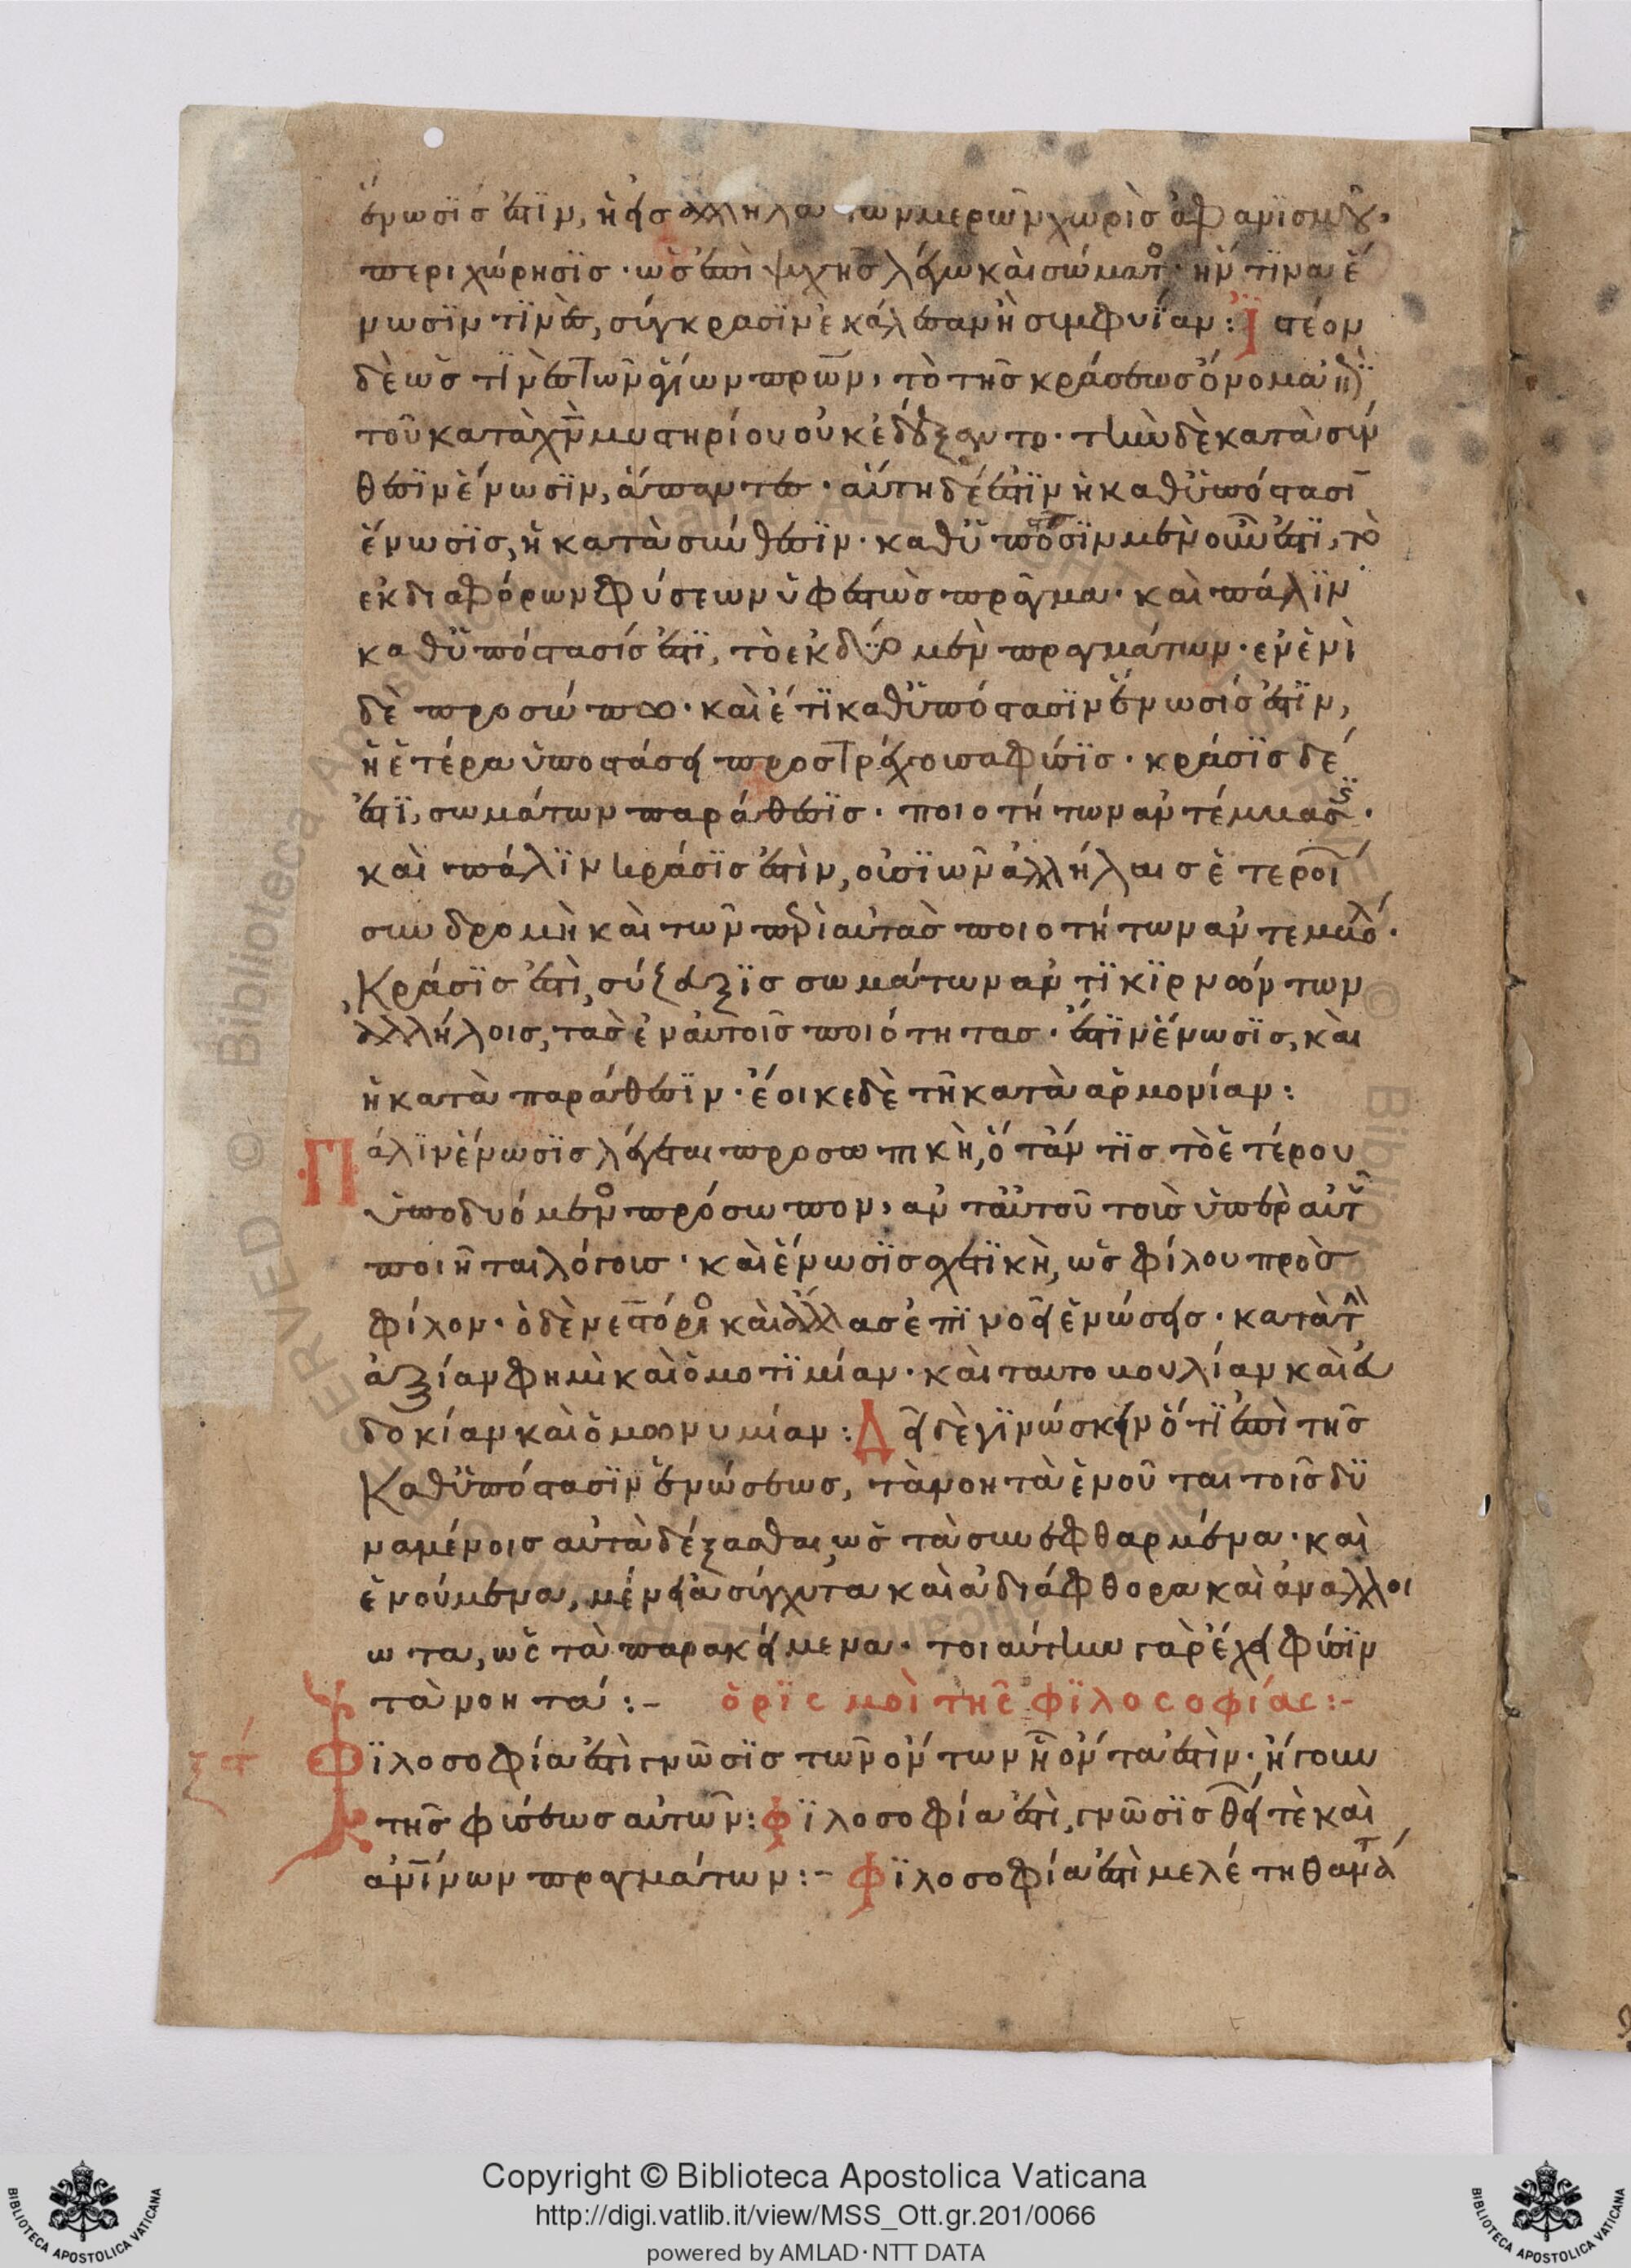 ἕνωσίς ἐστιν, ἡ εἰς ἄλληλα τῶν μερῶν χωρὶς ἀφανισμοῦ
περιχώρησις· ὡς ἐπὶ ψυχῆς λέγω καὶ σώματος· ἥν τινα ἕ
νωσιν τινὲς, σύγκρασιν ἐκάλεσαν ἢ συμφυίαν: Ἰστέον
δὲ ὡς τινὲς τῶν ἁγίων πρων, τὸ τῆς κράσεως ὄνομα ἐπὶ
τοῦ κατὰ χν μυστηρίου οὐκ ἐδέξαντο· τὴν δὲ κατὰ σύν
θεσιν ἕνωσιν, ἅπαντες· αὕτη δέ ἐστιν ἡ καθ ὑπόστασιν
ἕνωσις, ἡ κατὰ σύνθεσιν· καθ ὑπόστασιν μὲν οὖν ἐστι, τὸ
ἐκ διαφόρων φύσεων ὑφεστὼς πρᾶγμα· καὶ πάλιν
καθ ὑπόστασίς ἐστι, τὸ ἐκ δύο μὲν πραγμάτων· ἐν ἑνὶ
δὲ προσώπω· καὶ ἔτι καθ ὑπόστασιν ἕνωσίς ἐστιν,
ἡ ἑτέρα ὑποστάσει προστρέχουσα φύσις· κράσις δέ
ἐστι, σωμάτων παράθεσις· ποιοτήτων ἀντέμμασις·
καὶ πάλιν κράσις ἐστὶν, οὐσιῶν ἀλλήλαις ἑτεροί
συνδρομὴ καὶ τῶν περὶ αὐτὰς ποιοτήτων ἀντεμβολή·
Κράσις ἐστὶ, σύζευξις σωμάτων ἀντικιρνώντων
ἀλλήλοις, τὰς ἐν αὐτοῖς ποιότητας· ἐστιν ἕνωσις, καὶ
ἡ κατὰ παράθεσιν· ἔοικε δὲ τῆ κατὰ ἁρμονίαν:
Πάλιν ἕνωσις λέγεται προσωπικὴ, ὅτάν τις τὸ ἑτέρου
ὑποδυόμενος πρόσωπον, ἀντ αὐτοῦ τοὺς ὑπὲρ αὐτοῦ
ποιῆται λόγους· καὶ ἕνωσις σχετικὴ, ὡς φίλου πρὸς
φίλον· ὁ δὲ νεστόριος καὶ ἄλλας ἐπινοεῖ ἑνώσεις· κατὰ τὴν
ἀξίαν φημὶ καὶ ὁμοτιμίαν· καὶ ταυτοβουλίαν καὶ εὐ
δοκίαν καὶ ὁμωνυμίαν: Δεῖ δὲ γινώσκειν ὅτι ἐπὶ τῆς
Καθ ὑπόστασιν ἑνώσεως, τὰ νοητὰ ἑνοῦται τοῖς δυ
ναμένοις αὐτὰ δέξασθαι, ὡς τὰ συνεφθαρμένα· καὶ
ἑνούμενα, μένει ἀσύγχυτα καὶ ἀδιάφθορα καὶ ἀναλλοί
ωτα, ὡς τὰ παρακείμενα· τοιαύτην γὰρ ἔχει φύσιν
τὰ νοητά:- ὁρισμοὶ τῆς φιλοσοφίας:-
Φιλοσοφία ἐστὶ γνῶσις τῶν ὄντων ἧ ὄντα ἐστὶν· ἤγουν
τῆς φύσεως αὐτῶν: Φιλοσοφία ἐστὶ, γνῶσις θείων τὲ καὶ
ἀνίνων πραγμάτων:- Φιλοσοφία ἐστὶ μελέτη θανάτ
Copyright © Biblioteca Apostolica Vaticana
http://digi.vatlib.it/view/MSS_Ott.gr.201/0066
powered by AMLAD·NTT DATA
BIBLIOTECA APOSTOLICA VATICANA
BIBLIOTECA APOSTOLICA VATICANA